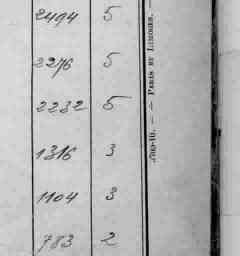 2494 5
2276 5
2232 5
1316 3
1104 3
783 2
PARIS ET LIMOGES.